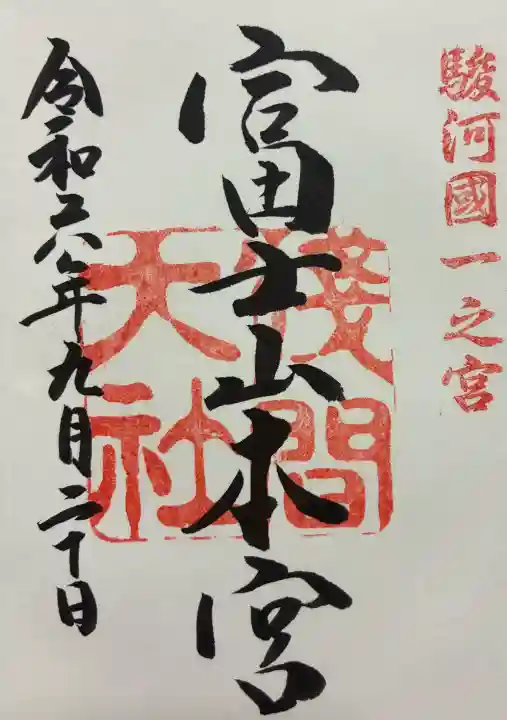 駿河國一之宮
富士山本宮
淺間
大社
令和六年九月二十日